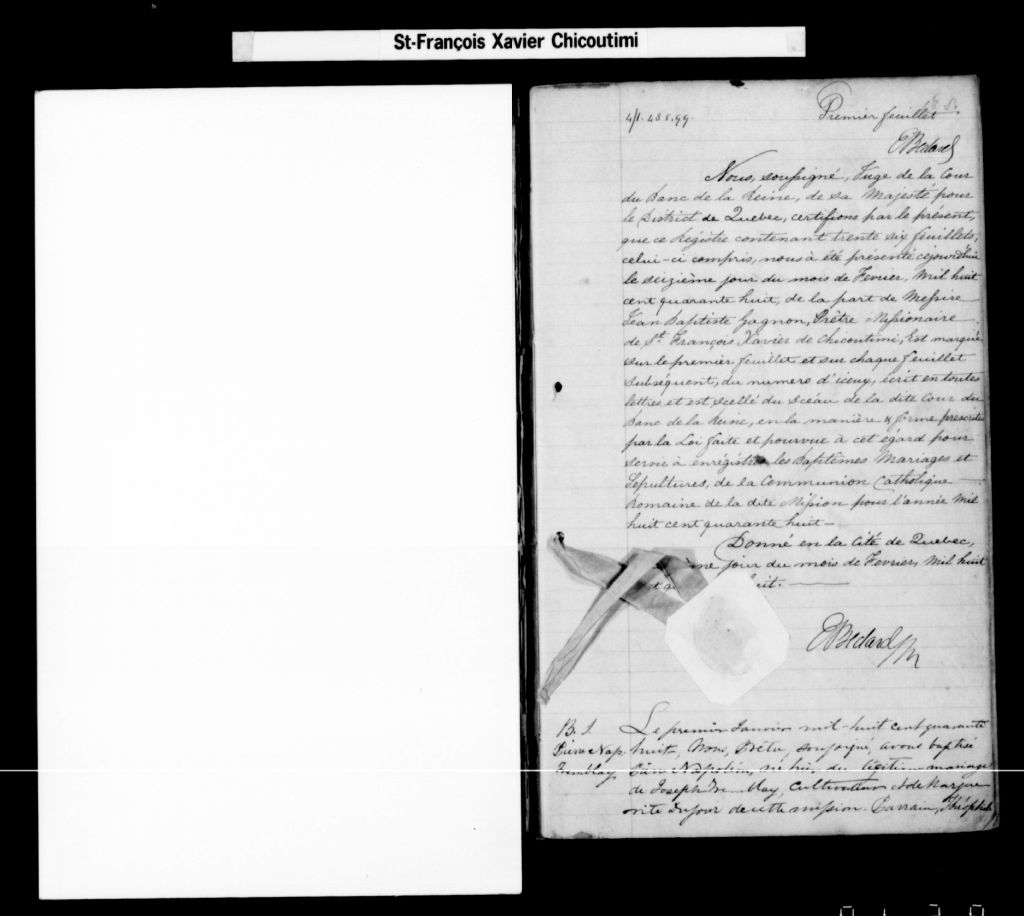 St-François Xavier Chicoutimi
Premier feuillet
EBedard
Nous, soussigné, Juge de la Cour
du Banc de la Reine, de Sa Majesté pour
le District de Quebec, certifions par le présent,
que ce Régistre contenant trente six feuillets,
celui-ci compris, nous à été présenté cejourd'hui
le seizième jour du mois de Fevrier, Mil huit
cent quarante huit, de la part de Messire
Jean Baptiste Gagnon, Prêtre Missionaire
de St. François Xavier de Chicoutimi, Est marqué
sur le premier feuillet et sur chaque feuillet
subséquent, du numero d'iceux, écrit en toutes
lettres et est scellé du Sceau de la dite Cour du
Banc de la Reine, en la manière & forme prescrite
par la Loi faite et pourvue à cet égard pour
servir à enrégistrer les Baptêmes Mariages et
Sépultures, de la Communion Catholique
Romaine de la dite Mission pour l'année Mil
huit cent quarante huit—
Donné en la Cité de Quebec,
me jour du mois de Fevrier, Mil huit
uit.
EBedard
B. 1
Le premier Janvier mil-huit cent quarante
Pierre Nap.
huit Nous, Prêtre, soussigné, avons baptisé
Tremblay
Pierre Napoléon, né hier, du légitime mariage
de Joseph Tremblay, cultivateur & de Margue
rite Dufour de cette mission. Parrain, Théophile